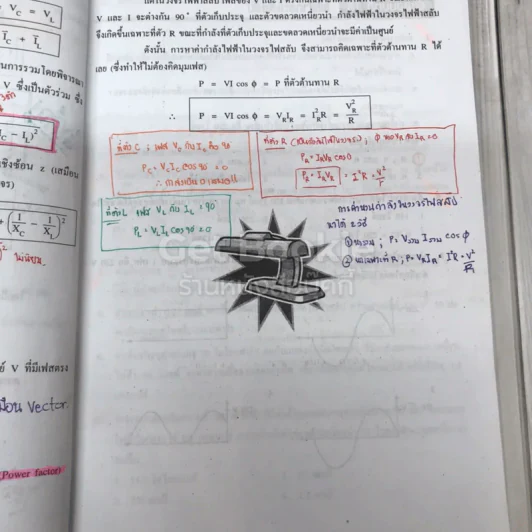 V และ I จะต่างกัน 90° ที่ตัวเก็บประจุ และตัวขดลวดเหนี่ยวนำ กำลังไฟฟ้าในวงจรไฟฟ้าสลับ
จึงเกิดขึ้นเฉพาะที่ตัว R ขณะที่กำลังที่ตัวเก็บประจุและขดลวดเหนี่ยวนำจะมีค่าเป็นศูนย์
ดังนั้น การหาค่ากำลังไฟฟ้าในวงจรไฟฟ้าสลับ จึงสามารถคิดเฉพาะที่ตัวต้านทาน R ได้
เลย (ซึ่งทำให้ไม่ต้องคิดมุมเฟส)
P = VI cos ϕ = P ที่ตัวต้านทาน R
∴ P = VI cos ϕ = V_R I_R = I_R² R = V_R²/R
ที่ตัว C ; เฟส V_C กับ I_C คือ 90°
P_C = V_C I_C cos 90 = 0
ที่ตัว R
P_R = I_R V_R cos 0
P_R = I_R V_R = I²R = V²/r
ที่ตัว L เฟส V_L กับ I_L = 90°
P_L = V_L I_L cos 90 = 0
การคำนวณกำลังในวงจรไฟฟ้าสลับ
หาได้ 2 วิธี
① P = V I cos ϕ
② P = V_R I_R = I²R = V²/R
Get Book
ร้านหนังสือ
V_C = V_L
I_C + I_L
นการรวมโดยพิจารณา
V ซึ่งเป็นตัวร่วม ซึ่ง
C − I_L)²
เชิงซ้อน z (เสมือน
จร)
+ (1/X_C − 1/X_L)²
ไม่นิยม
ย์ V ที่มีเฟสตรง
เหมือน vector
(Power factor)